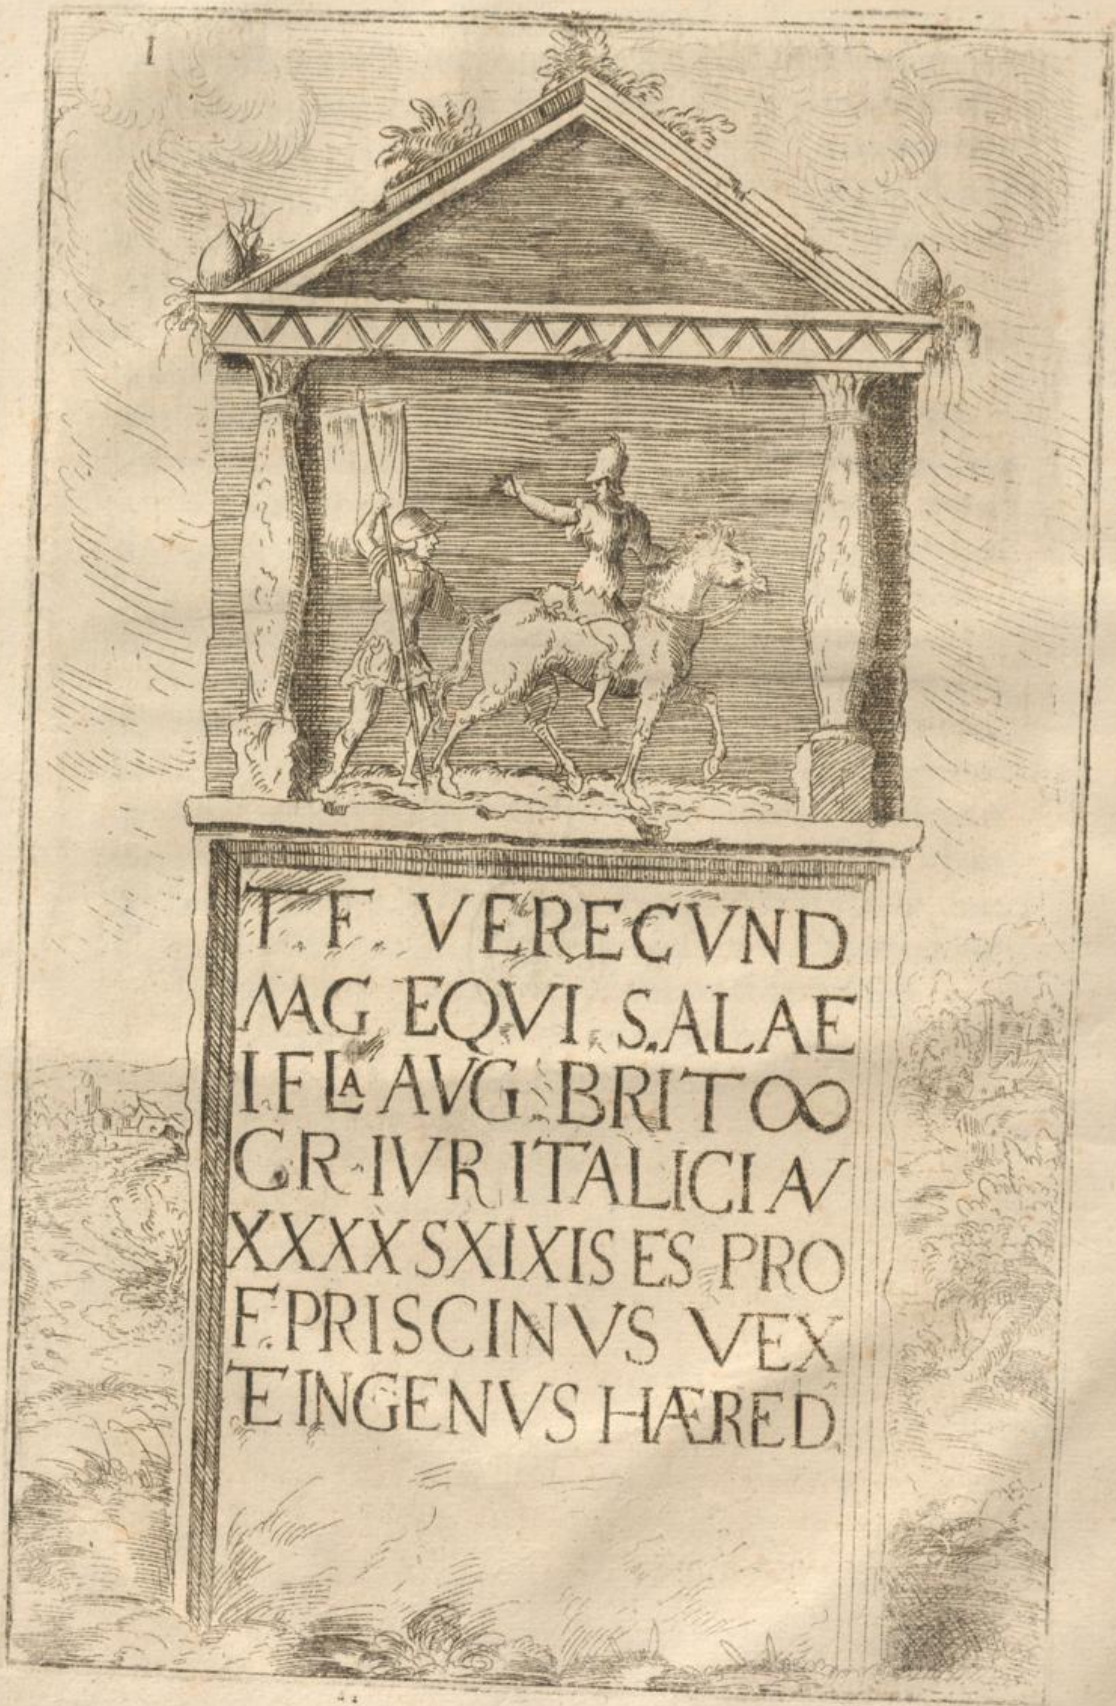 I
T. F. VERECVND
MAG EQVI. S.ALAE
I.FLA AVG. BRIT ∞
C.R. IVR ITALICI AV
XXXX SXIXIS ES PRO
F. PRISCINVS VEX
T INGENVS HÆRED.